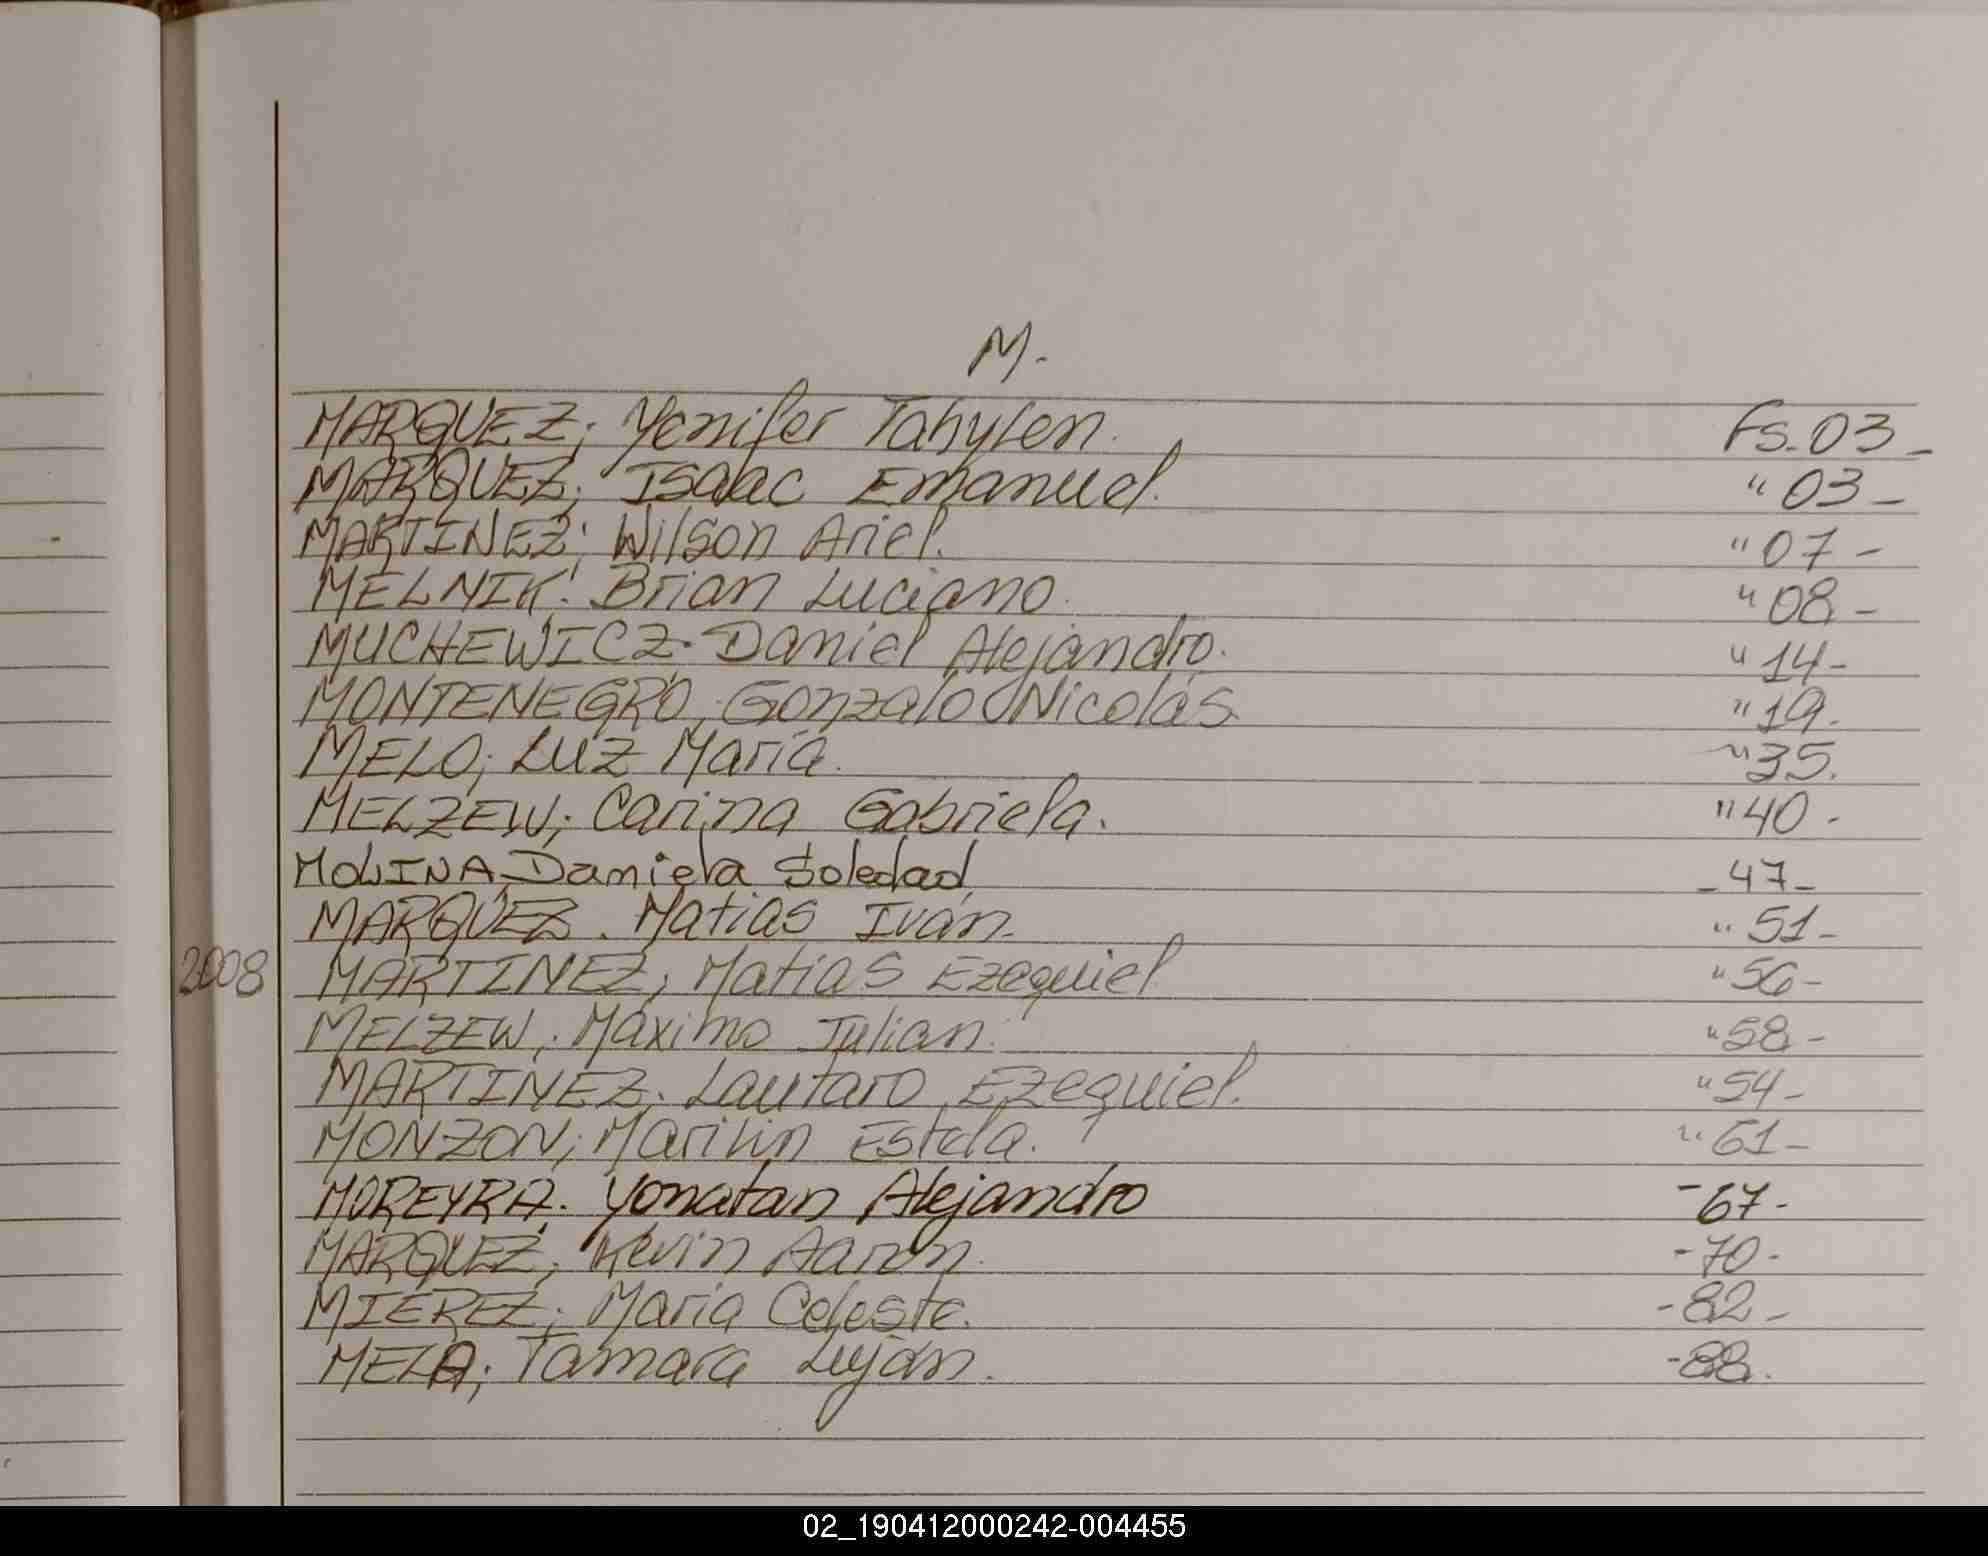 M.-
MARQUEZ; Yenifer Tahylen. Fs. 03-
MARQUEZ; Isaac Emanuel. " 03-
MARTINEZ; Wilson Ariel. " 07-
MELNIK. Brian Luciano. " 08-
MUCHEWICZ. Daniel Alejandro. " 14-
MONTENEGRO, Gonzalo Nicolás " 19.
MELO; Luz María. " 35.
MELZEW; Carina Gabriela. " 40-
MOLINA, Daniela Soledad - 47-
MARQUEZ. Matias Iván. " 51-
2008 MARTINEZ; Matias Ezequiel " 56-
MELZEW; Máximo Julian. " 58-
MARTINEZ. Lautaro Ezequiel. " 54-
MONZON; Marilin Estela. " 61-
MOREYRA. Yonatan Alejandro - 67-
MARQUEZ; Kevin Aaron. - 70-
MIEREZ; Maria Celeste. - 82-
MELO; Tamara Luján. - 88.
02_190412000242-004455